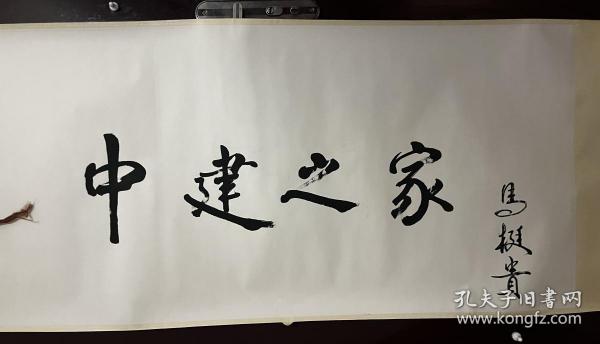 中建之家
马挺贵
孔夫子旧书网
www.kongfz.com